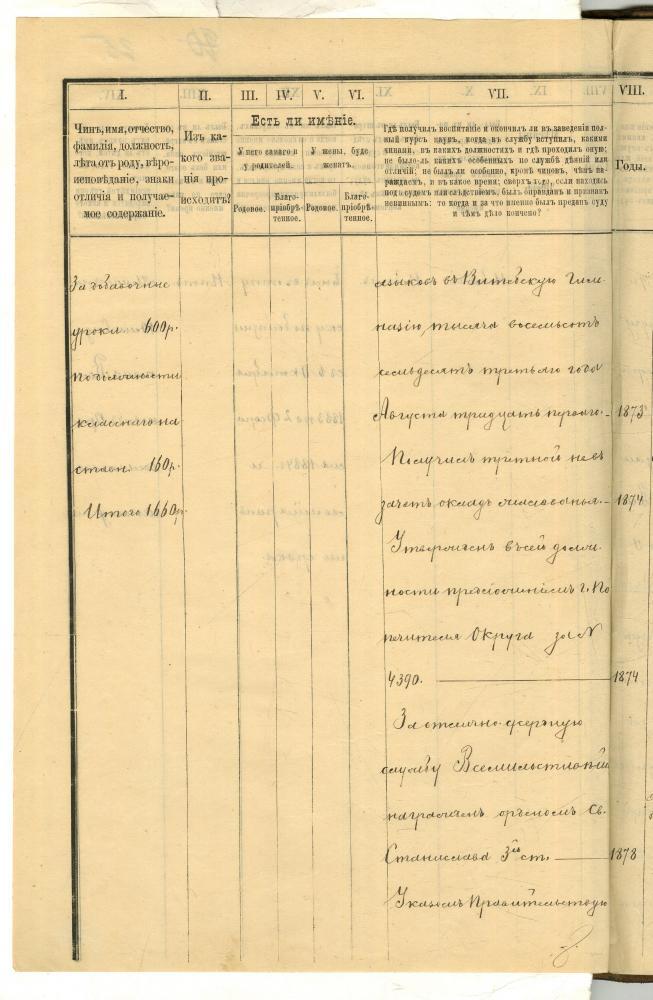 I. II. III. IV. V. VI. VII. VIII.
Чинъ, имя, отчество,
фамилія, должность,
лѣта отъ роду, вѣро-
исповѣданіе, знаки
отличія и получае-
мое содержаніе.
Изъ ка-
кого зва-
нія про-
исходитъ?
Есть ли имѣніе.
У него самаго и
у родителей.
У жены, буде
женатъ.
Родовое.
Благо-
пріобрѣ-
тенное.
Родовое.
Благо-
пріобрѣ-
тенное.
Гдѣ получилъ воспитаніе и окончилъ ли въ заведеніи пол-
ный курсъ наукъ, когда въ службу вступилъ, какими
чинами, въ какихъ должностяхъ и гдѣ проходилъ оную;
не было-ль какихъ особенныхъ по службѣ дѣяній или
отличій; не былъ ли особенно, кромѣ чиновъ, чѣмъ на-
граждаемъ, и въ какое время; сверхъ того, если находясь
подъ судомъ или слѣдствіемъ, былъ оправданъ и признанъ
невиннымъ: то когда и за что именно былъ преданъ суду
и чѣмъ дѣло кончено?
Годы.
За добавочные
уроки 600 р.
по должности
класснаго на
ставн. 160 р.
Итого 1660 р.
языковъ въ Витебскую Гим-
назію, тысяча восемьсотъ
семьдесятъ третьяго года
Августа тридцать перваго. 1873
Получилъ третной не въ
зачетъ окладъ жалованья. 1874
Утвержденъ въ сей долж-
ности предложеніемъ г. По
печителя Округа за N
4390. 1874
За отлично-усердную
службу Всемилостивѣйше
награжденъ орденомъ Св.
Станислава 3й ст. 1878
Указомъ Правительствую